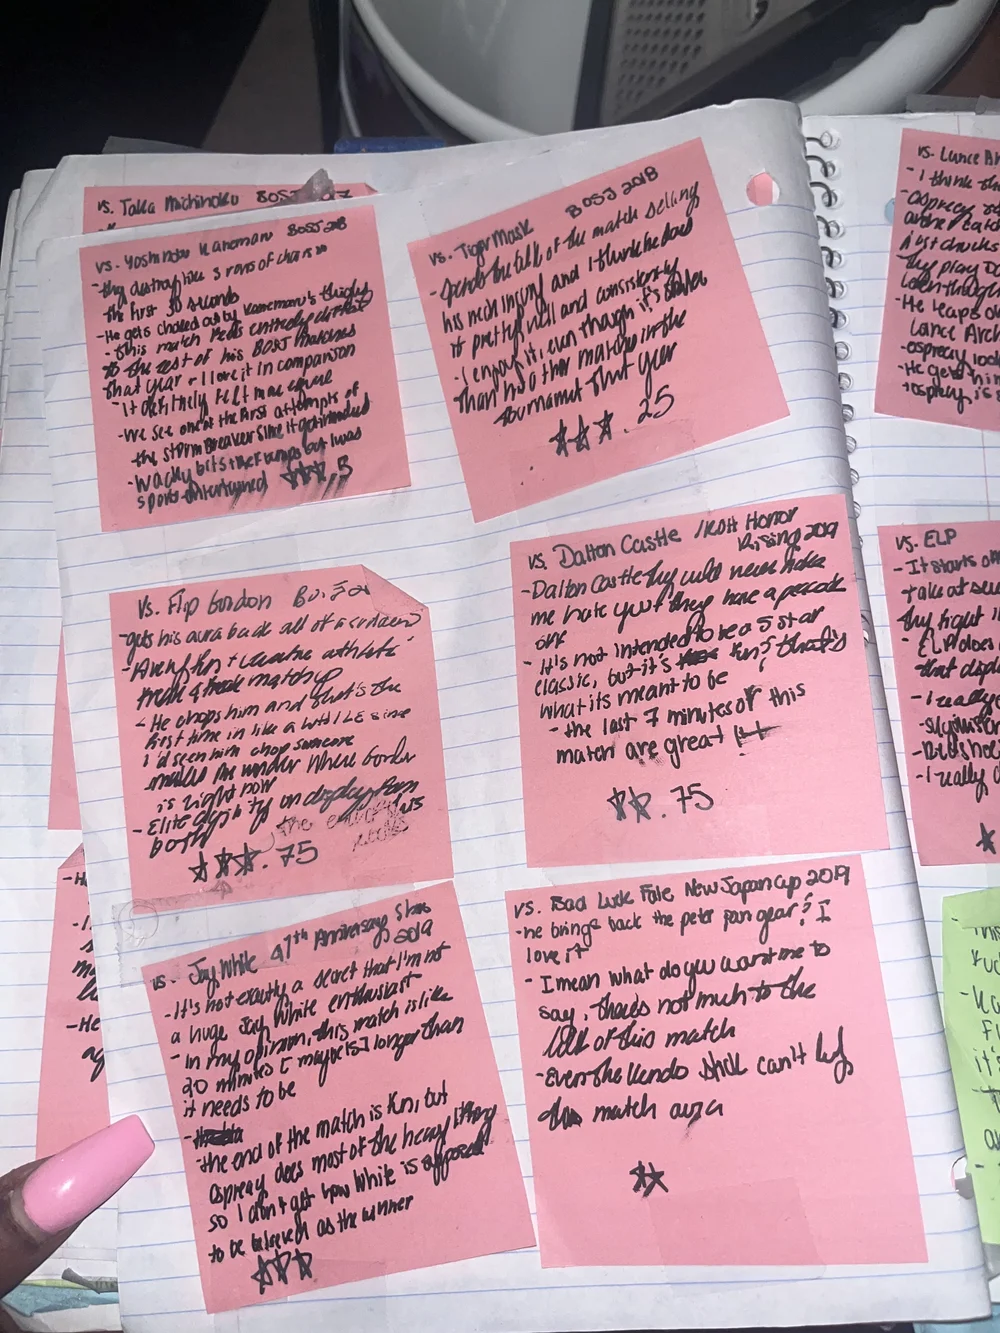 vs. Taka Michinoku BOSJ 2017
vs. Yoshinobu Kanemaru BOSJ 2018
- they destroy like 3 rows of chairs in
the first 30 seconds
- He gets choked out by Kanemaru's thighs
- this match feels entirely different
to the rest of his BOSJ matches
that year + I love it in comparison
- It definitely felt more
- We see one of the first attempts of
the stormbreaker since it got introduced
- wacky bits + ref bumps but I was
sports entertained ☆☆☆.5
vs. Tiger Mask BOSJ 2018
- Spends the bulk of the match selling
his neck injury and I think he does
it pretty well and consistently
- I enjoy it, even though it's
than his other matches in the
tournament that year
☆☆☆.25
vs. Flip Gordon
- gets his aura back all of a sudden
- A very fun + creative athletic
freak 4 freak matchup
- He chops him and that's the
first time in like a WHILE since
I'd seen him chop someone
makes me wonder where Gordon
is right now
- Elite agility on display from
both
☆☆☆.75
vs. Dalton Castle /ROH Honor
Rising 2019
- Dalton Castle they could never make
me hate you if they have a parade
or
- It's not intended to be a 5 star
classic, but it's fun, that's
what its meant to be
- the last 7 minutes of this
match are great
☆☆.75
vs. Jay White 47th Anniversary Show
2019
- It's not exactly a secret that I'm not
a huge Jay White enthusiast
- In my opinion, this match is like
20 minutes [maybe 15] longer than
it needs to be
- the end of the match is fun, but
ospreay does most of the heavy lifting
so I don't get how White is supposed
to be believed as the winner
☆☆☆
vs. Bad Luck Fale New Japan Cup 2019
- he brings back the peter pan gear? I
love it
- I mean what do you want me to
say, there's not much to the
bulk of this match
- Even the kendo stick can't
this match aura
☆☆
vs. Lance
- I think
- ospreay
- He leaps
Lance Arch
- ospreay
- He gets
vs. ELP
- It starts
take at
they fight
- ELP does
that
- I really
- I really